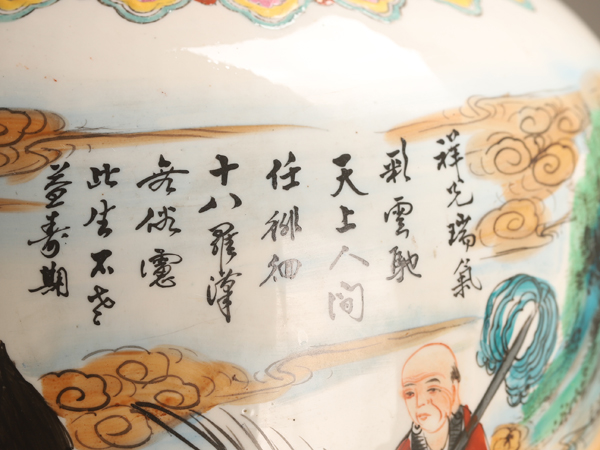 祥光瑞氣
彩雲馳
天上人间
任徘徊
十八羅漢
無俗慮
此生不老
益壽期